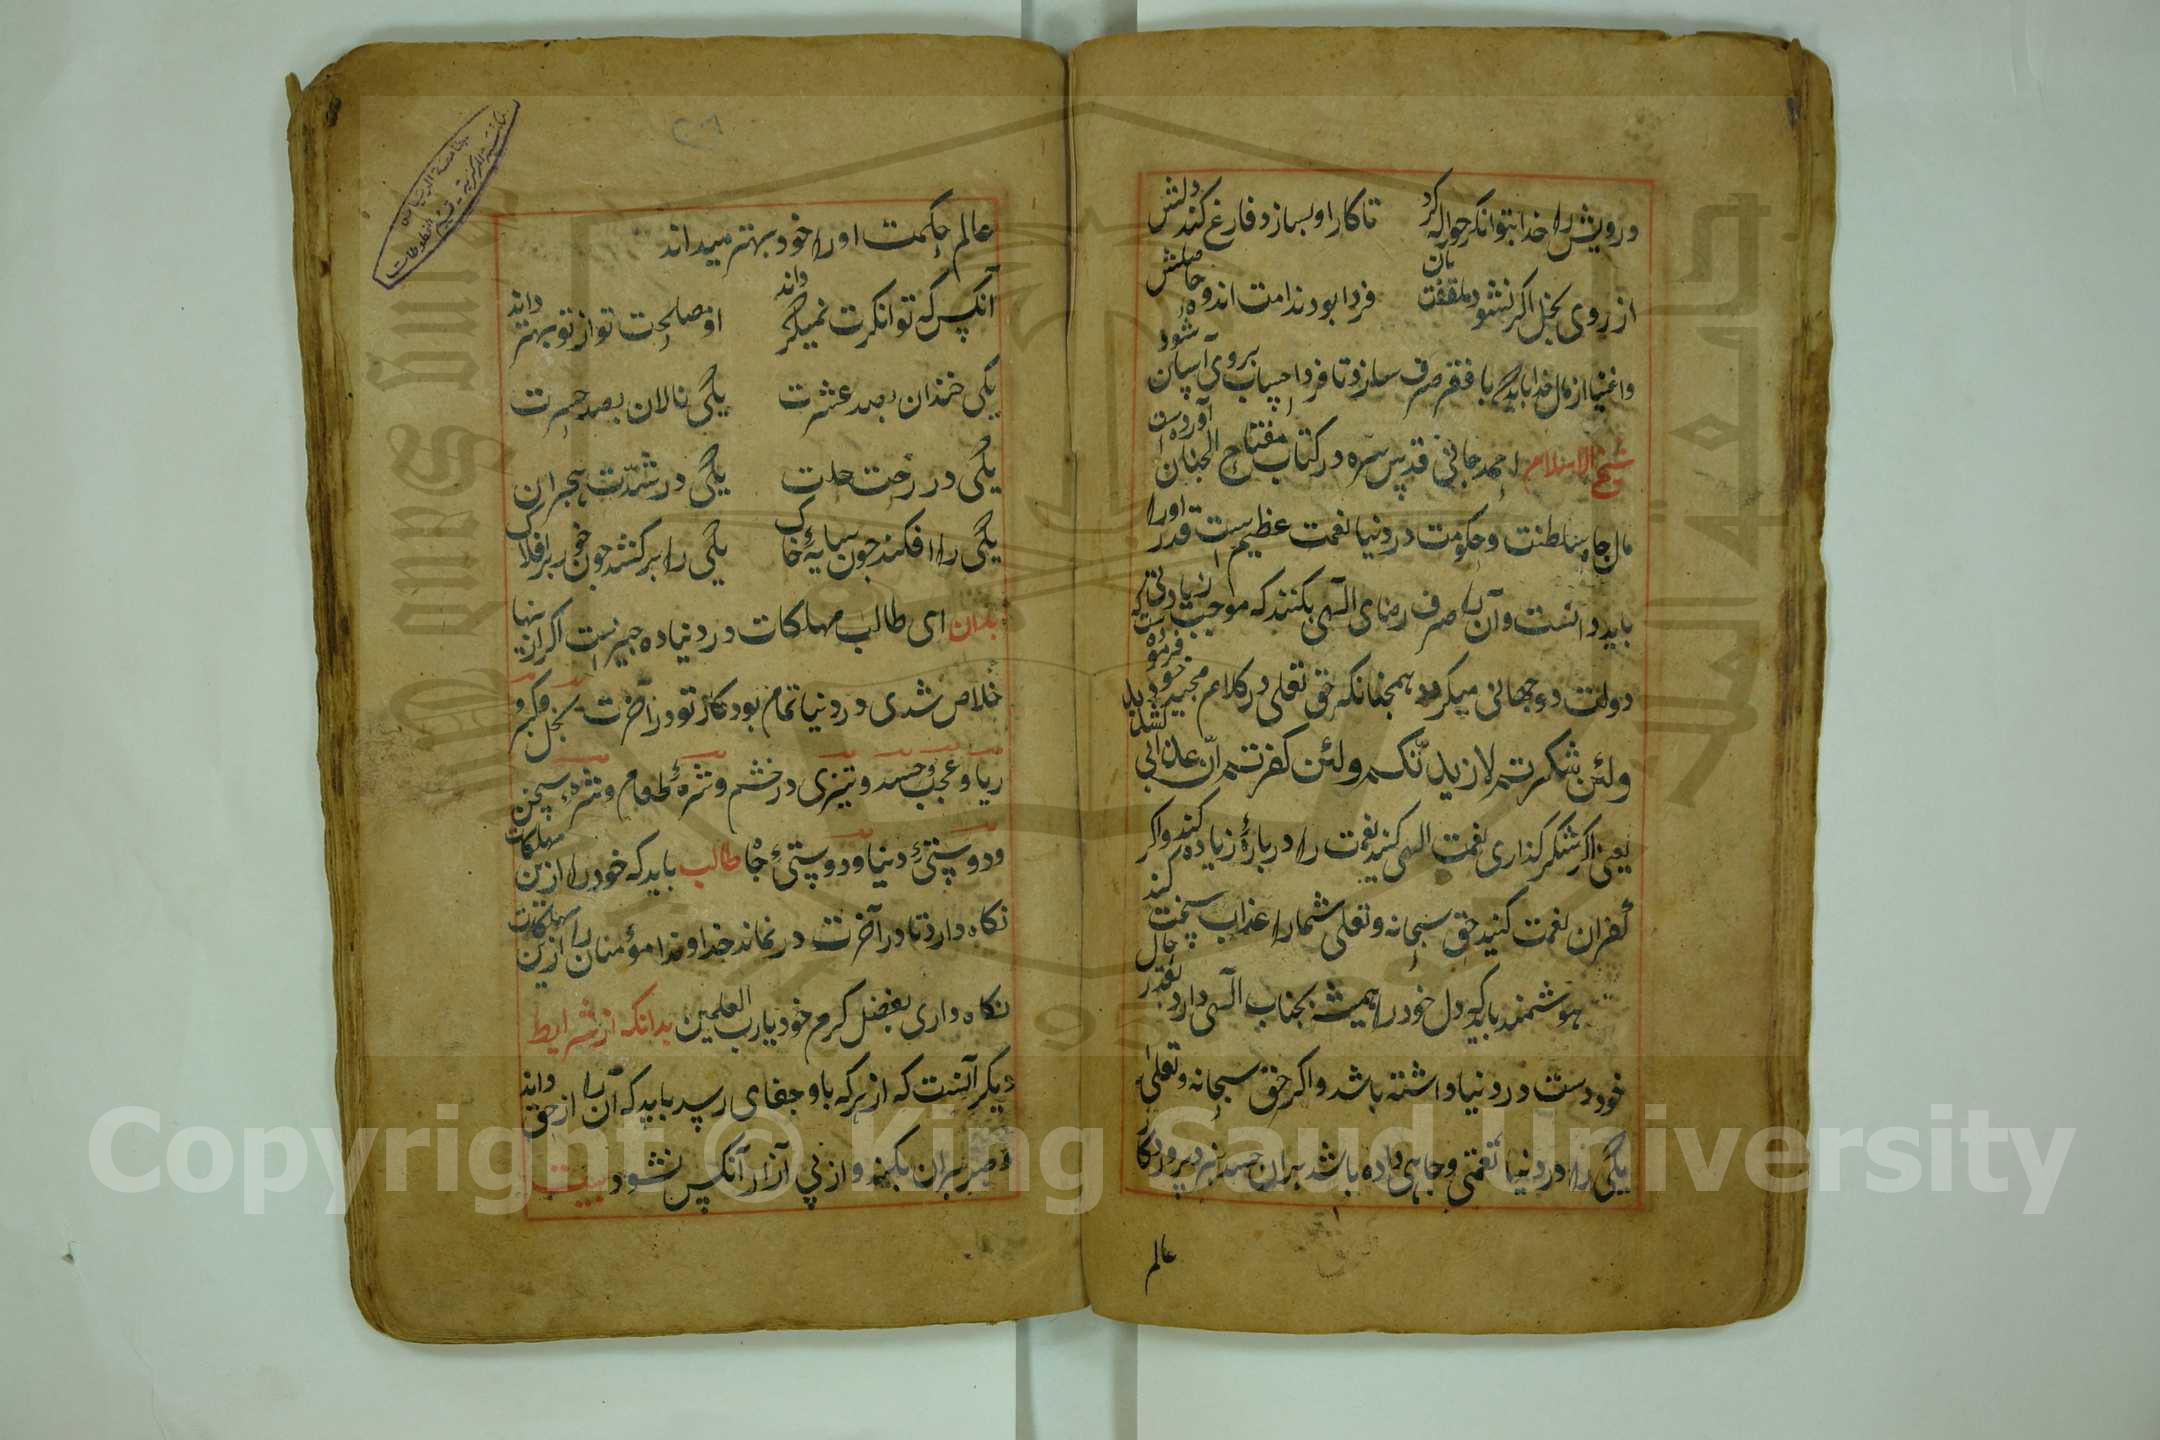 درویش را خدا بتوانکر حواله کرد تا کار او بسازد و فارغ کند دلش
از روی بخل اگر نشود ملتفت بآن فردا بود ندامت اندوه حاصلش
واغنیا از مال خدا باید که با فقر صرف سازد تا فردا حساب بروی آسان شود
شیخ الاسلام احمد جامی قدس سره در کتاب مفتاح الجنان آورده است
مال جاه سلطنت و حکومت در دنیا نعمت عظیم است قدر او را
باید دانست و آن را صرف رضای الهی بکنند که موجب زیادتی
دولت دو جهانی میکردد همچنانکه حق تعلی در کلام مجید خود فرموده است که
ولئن شکرتم لازیدنکم ولئن کفرتم ان عذابی لشدید
یعنی اکر شکر کذاری نعمت الهی کنید نعمت را درباره زیاده کند و اکر
کفران نعمت کنید حق سبحانه و تعلی شما را عذاب سخت کند
هوشمند باید که دل خود را همیشه بجناب الهی دارد بقدر حال
خود دست در دنیا داشته باشد و اکر حق سبحانه و تعلی
یکی را در دنیا نعمتی و جاهی داده باشد بران حسد نبرد
عالم
عالم حکمت او را خود بهتر میداند
آنکس که توانکرت نمیکرداند او مصلحت تو از تو بهتر داند
یکی خندان بصد عشرت یکی نالان بصد حسرت
یکی در راحت یکی در شدت هجران
یکی را افکند چون سایه خاک یکی را برکشد چون خور بر افلاک
بدان ای طالب مهلکات در دنیا ده چیز است اکر از ینها
خلاص شدی در دنیا تمام بود کار تو در آخرت بخل و کبر و
ریا و عجب و حسد و تیزی در خشم و شره طعام و شره سخن
و دوستئ دنیا و دوستئ جاه طالب باید که خود را ازین مهلکات
نکاه دارد تا در آخرت در نماند خداوندا مؤمنان را ازین مهلکات
نکاه داری بفضل کرم خود یا رب العلمین بدانکه از شرایط
دیکر آنست که از هر که باو جفای رسد باید که آن را از حق داند
و صبر بران بکند و از پی آزار آنکس نشود بیت
Copyright © King Saud University